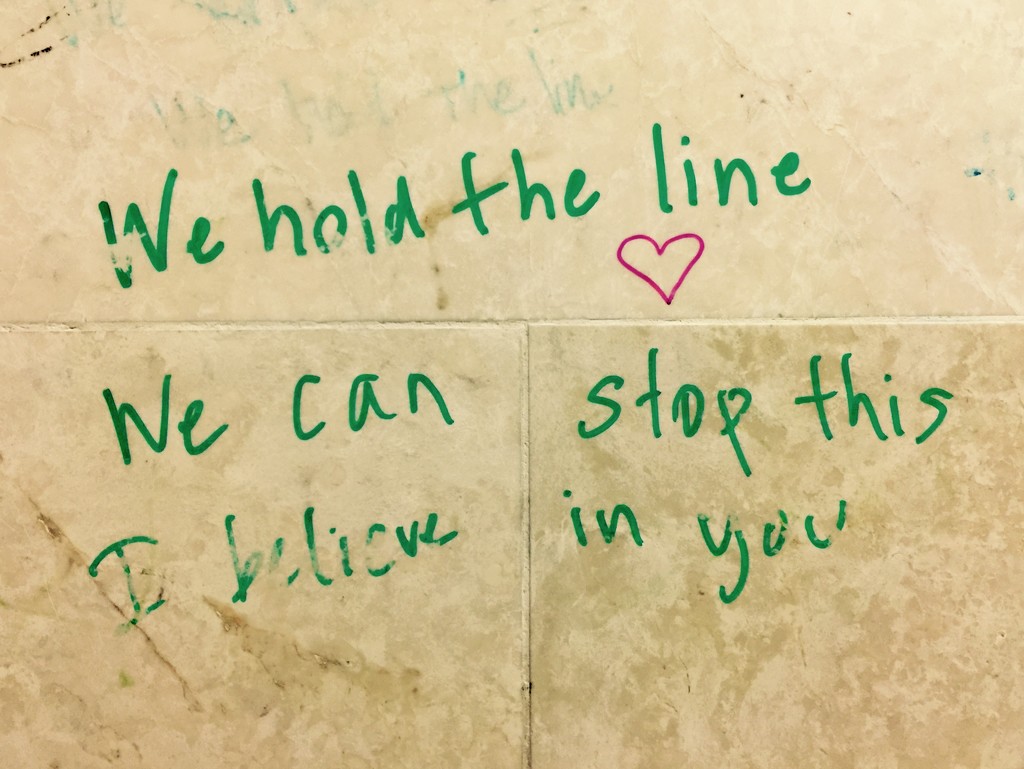 We hold the line
We hold the line
We can stop this
I believe in you